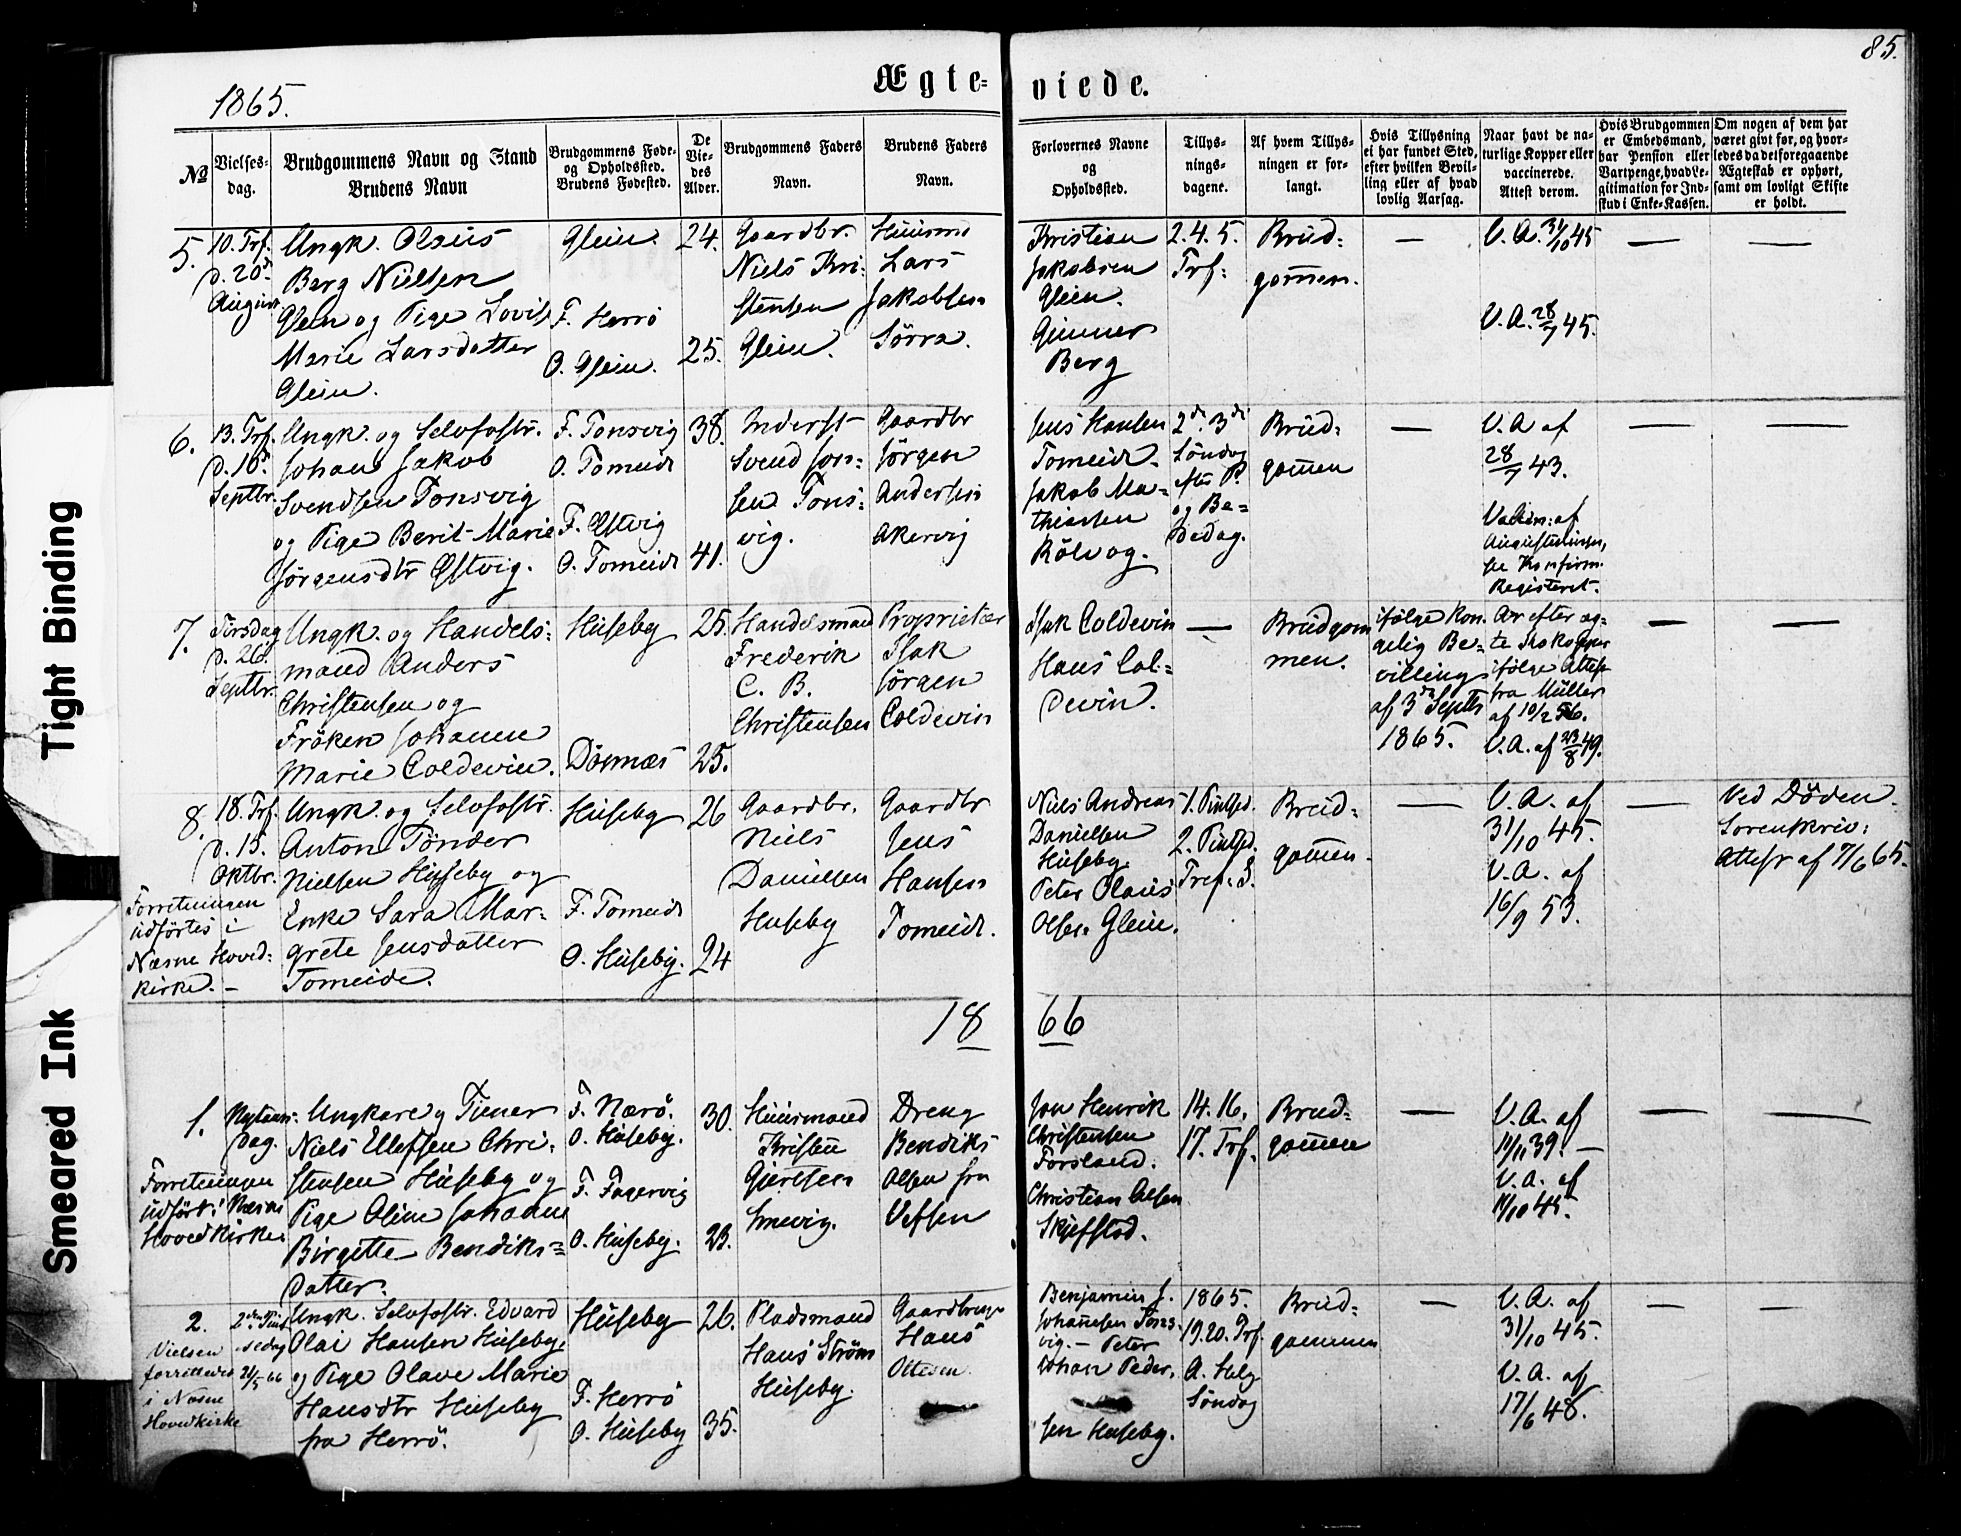 85.
1865.
Ægte-
viede.
№
Vielses-
dag.
Brudgommens Navn og Stand
Brudens Navn
Brudgommens Føde-
og Opholdssted.
Brudens Fødested.
De
Vie-
des
Alder.
Brudgommens Faders
Navn.
Brudens Faders
Navn.
Forlovernes Navne
og
Opholdssted.
Tillys-
nings-
dagene.
Af hvem Tillys-
ningen er for-
langt.
Hvis Tillysning
ei har fundet Sted,
efter hvilken Bevil-
ling eller af hvad
lovlig Aarsag.
Naar havt de na-
turlige Kopper eller
vaccinerede.
Attest derom.
Hvis Brudgommen
er Embedsmand,
har Pension eller
Vartpenge, hvad Le-
gitimation for Ind-
skud i Enke-Kassen.
Om nogen af dem har
været givt før, og hvor-
ledes da det foregaaende
Ægteskab er ophørt,
samt om lovligt Skifte
er holdt.
5.
10. Trf.
d. 20d
August
Ungk. Olaus
Berg Nielsen
Glein og Pige Lovise
Marie Larsdatter
Glein.
Glein.
F. Herrö
O. Glein.
24.
25.
Gaardbr.
Niels Kri-
stensen
Glein.
Huusmd
Lars
Jakobsen
Sörra.
Kristian
Jakobsen
Glein.
Gunner
Berg
2. 4. 5.
Trf:
Brud:
gommen.
—
V. A. 31/10 45
V. A. 28/7 45.
—
—
6.
13. Trf.
d. 10d
Septbr.
Ungk. og Selvfostr.
Johan Jakob
Svendsen Tonsvig
og Pige Berit-Marie
Jörgensdtr Estvig.
F. Tonsvig
O. Tomeide
F. Estvig
O. Tomeide
38.
41.
Inderst
Svend Jon-
sen Tons-
vig.
Gaardbr
Jörgen
Andersen
Akervig
Jens Hansen
Tomeide.
Jakob Ma-
thiassen
Kölvog.
2de 3die
Söndag
efter P.
og Be-
dedag.
Brud:
gommen
—
V. A af
28/7 43.
Vaccin: af
Augustinussen,
se Konfirm.
Registeret.
—
—
7.
Tirsdag
d. 26.
Septbr.
Ungk. og Handels:
mand Anders
Christensen og
Fröken Johanne
Marie Coldevin.
Huseby
Dönnæs
25.
25.
Handelsmand
Frederik
C. B.
Christensen
Proprietær
Isak
Jörgen
Coldevin
Isak Coldevin
Hans Col-
devin.
—
Brudgom
men.
ifölge Kon.
gelig Be-
villing
af 3die Septbr
1865.
Ar efter æg-
te Kokopper
ifölge Attest
fra Müller
af 10/2 56.
V. A. af 23/8 49.
—
—
8.
18. Trf.
d. 15.
Oktbr.
Forretningen
udförtes i
Næsne Hoved:
kirke. –
Ungk. og Selvfostr.
Anton Tönder
Nielsen Huseby og
Enke Sara Mar-
grete Jensdatter
Tomeide.
Huseby
F. Tomeide
O. Huseby.
26
24
Gaardbr.
Niels
Danielsen
Huseby
Gaardbr
Jens
Hansen
Tomeide.
Niels Andreas
Danielsen
Huseby.
Peter Olaus
Olsen Glein.
1. Pintsed.
2. Pintsed.
Tref. S.
Brud:
gommen.
—
V. A. af
31/10 45.
V. A. af
16/9 53.
—
Ved Döden.
Sorenskriv:
Attest af 7/6 65.
1866
1.
Nytaars:
dag.
Forretningen
udfört i Næsne
Hovedkirke
Ungkar og Tiener
Niels Ellefsen Chri-
stensen Huseby og
Pige Oline Johanne
Birgitte Bendiks=
datter.
F. Nærö.
O. Huseby.
F. Fagervig
O. Huseby.
30.
23.
Huusmand
Kristen
Gjertsen
Smevig.
Dreng
Bendiks
Olsen fra
Vefsen
Jon Henrik
Christensen
Forsland.
Christian Olsen
Skjefstod.
14. 16.
17. Trf.
Brud-
gommen
—
V. A. af
11/11 39. —
V. A. af
14/10 45.
—
—
2.
2den Pint
sedag
21/5 66
Vielsen
forrettedes
i Næsne
Hovedkirke
Ungk. Selvfostr. Edvard
Olai Hansen Huseby
og Pige Olave Marie
Hansdtr Huseby
fra Herrö.
Huseby
F. Herrö
O. Huseby
26.
35.
Pladsmand
Hans Ström
Huseby.
Gaardbruger
Hans
Ottesen
Benjamin J.
Johannesen Tons-
vig. – Peter
Johan Peder,
sen Huseby.
1865.
19. 20. Trf.
A. Helg
Söndag
Brud:
gommen
—
V. A. af
31/10 45.
V. A. af
17/6 48.
—
—
Tight Binding
Smeared Ink